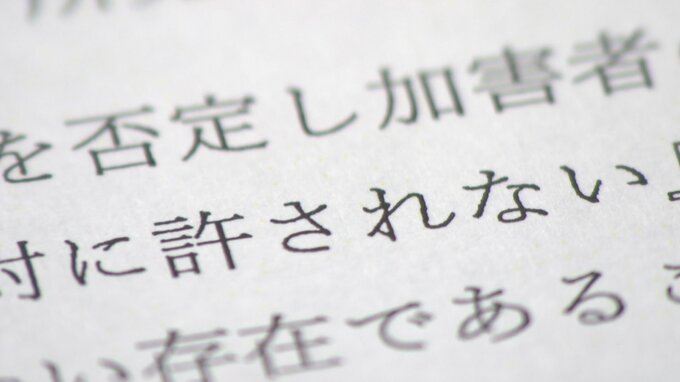 を否定し加害者
対に許されない」
い存在である